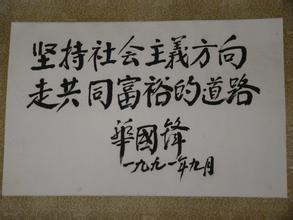 坚持社会主義方向
走共同富裕的道路
華國锋
一九九一年九月